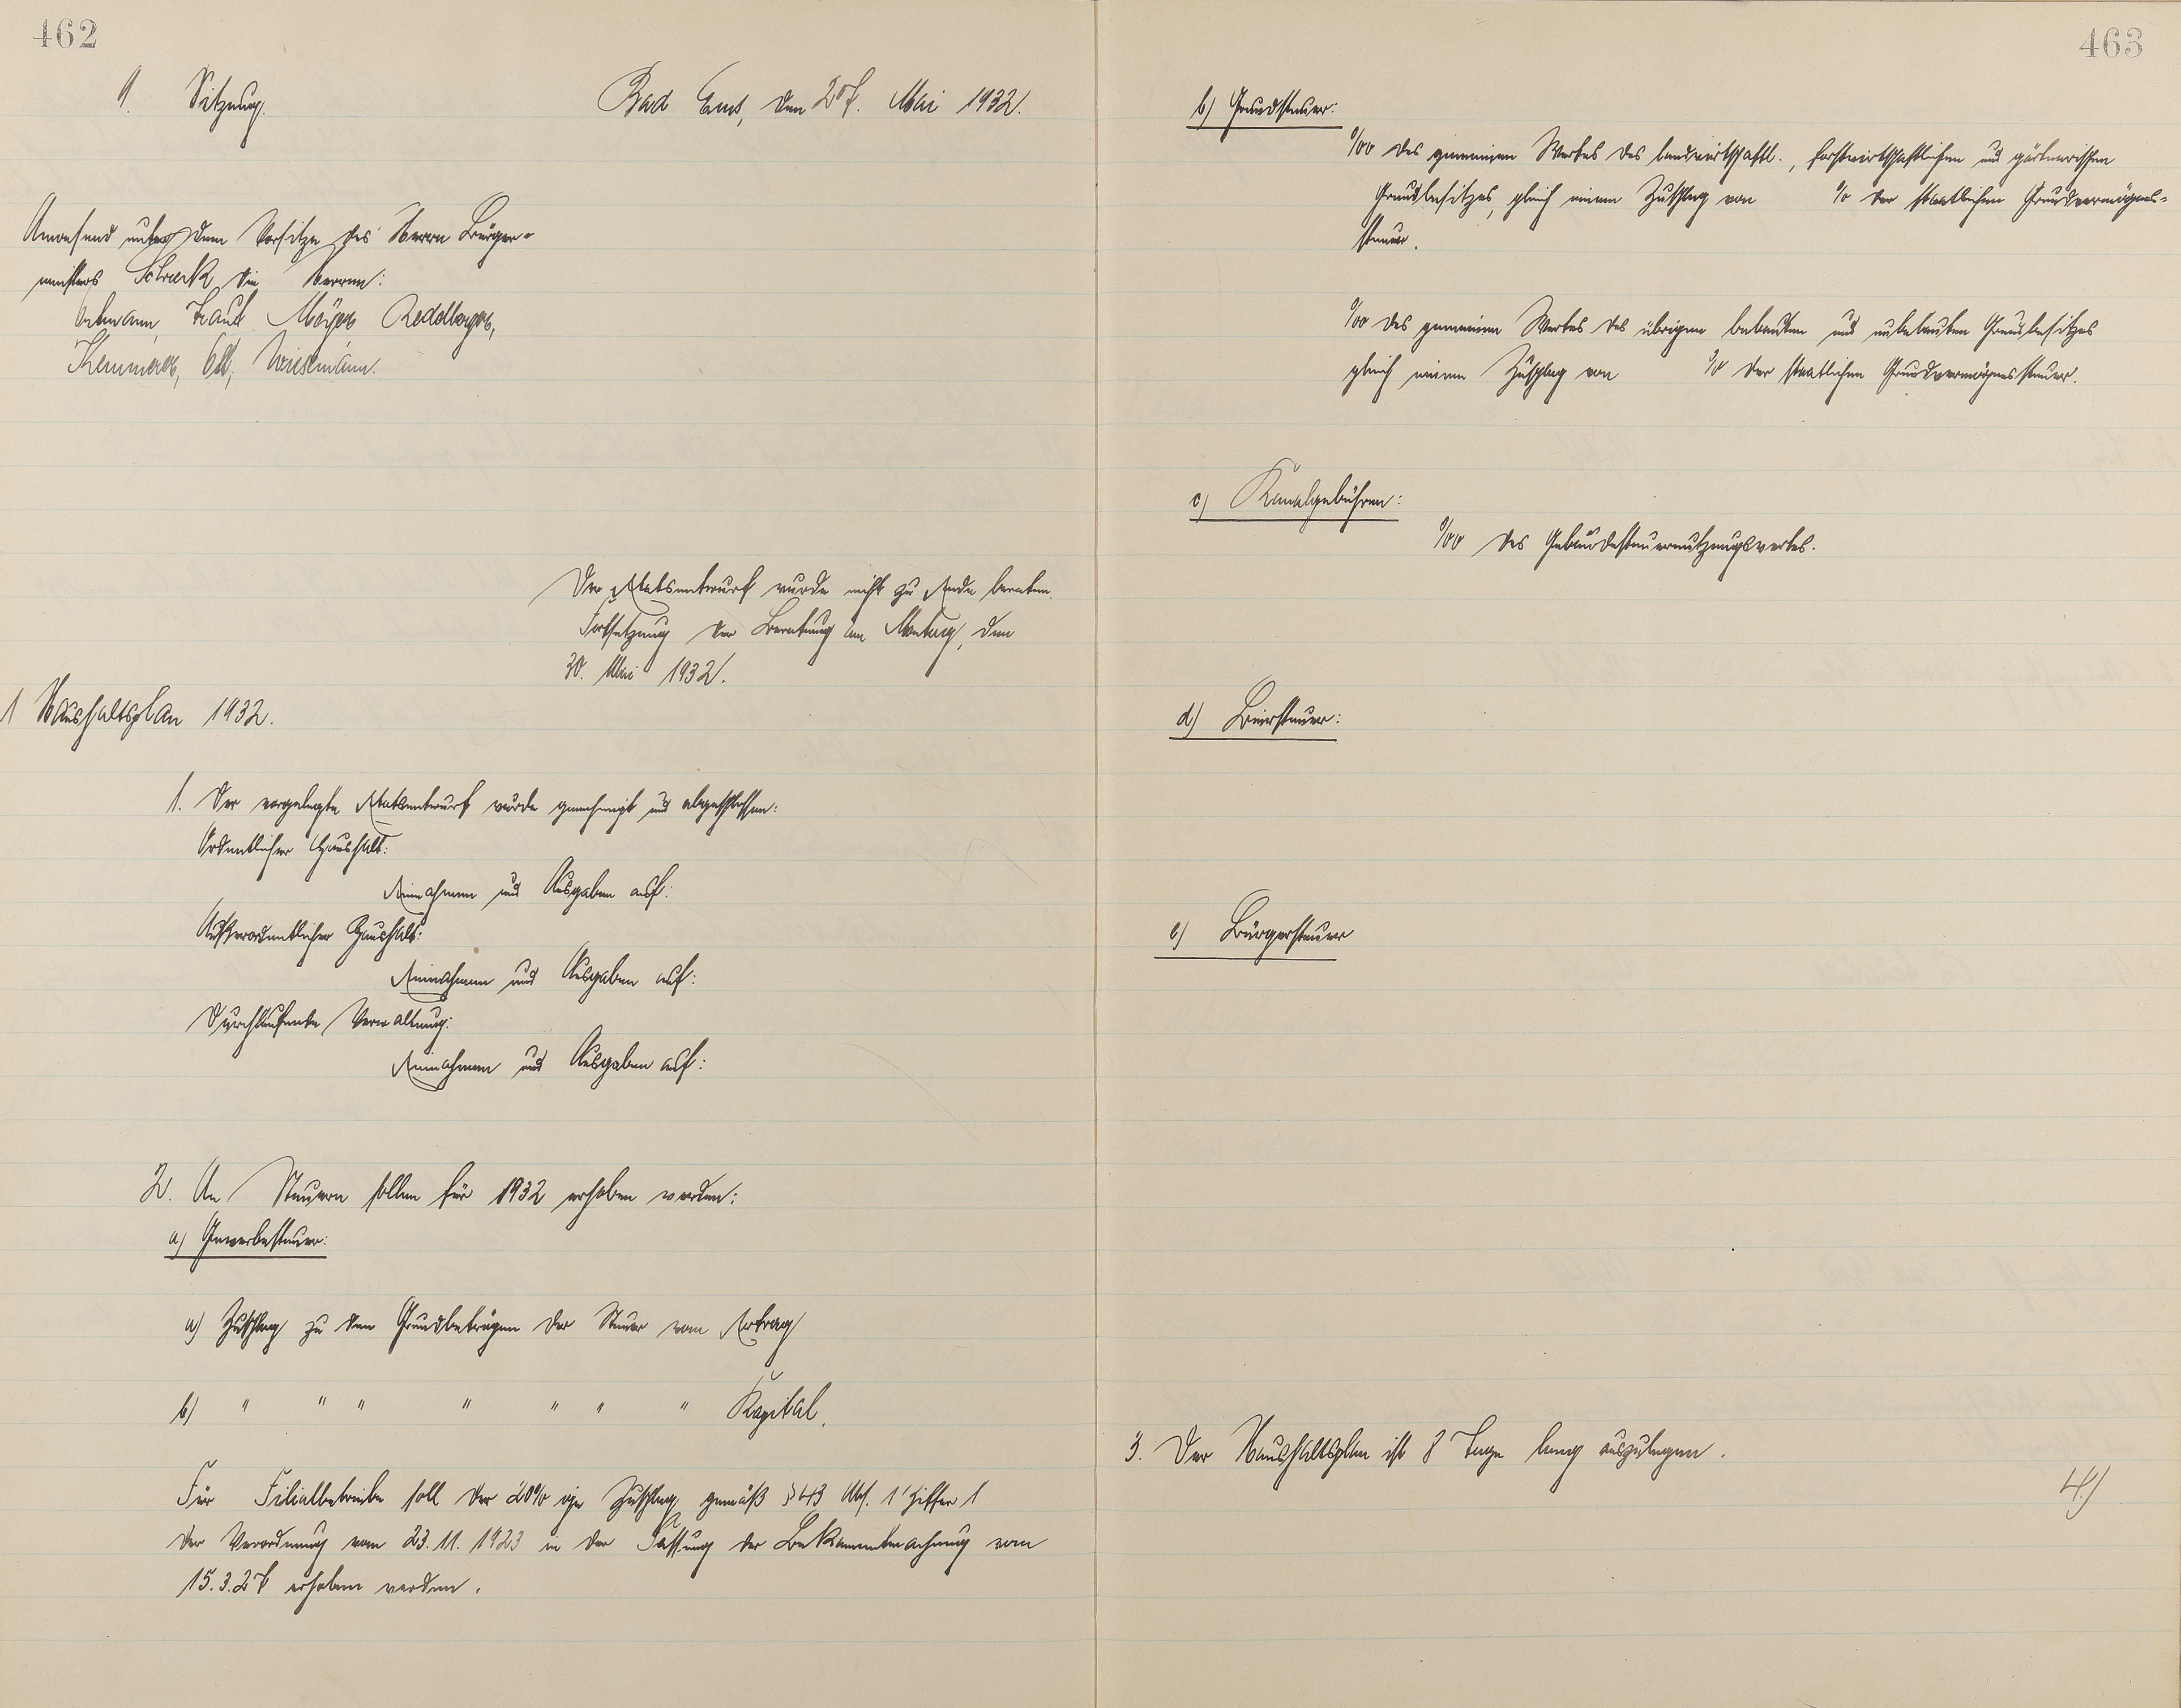 462
9. Sitzung.
Bad Ems, den 27. Mai 1932.
Anwesend unter dem Vorsitze des Herrn Bürger-
meisters Schreck die Herren:
Kemmerer, Ott, Wiesemann.
Der Etatsentwurf wurde nicht zu Ende beraten.
Fortsetzung der Beratung am Montag, den
30. Mai 1932.
1 Haushaltsplan 1932.
1. Der vorgelegte Etatsentwurf wurde genehmigt und abgeschlossen:
Ordentlicher Haushalt:
Einnahmen und Ausgaben auf:
Außerordentlicher Haushalt:
Einnahmen und Ausgaben auf:
Durchlaufende Verwaltung:
Einnahmen und Ausgaben auf:
2. An Steuern sollen für 1932 erhoben werden:
a) Gewerbesteuer:
a) Zuschlag zu den Grundbeträgen der Steuer vom Ertrag
b) " " " " " " " Kapital.
Für Filialbetriebe soll der 20% ige Zuschlag gemäß § 43 Abs. 1 Ziffer 1
der Verordnung vom 23.11.1923 in der Fassung der Bekanntmachung vom
15.3.27 erhoben werden.
463
b) Grundsteuer:
‰ des gemeinen Wertes des landwirtschaftl., forstwirtschaftlichen und gärtnerischen
Grundbesitzes, gleich einem Zuschlag von % der staatlichen Grundvermögens-
steuer.
‰ des gemeinen Wertes des übrigen bebauten und unbebauten Grundbesitzes
gleich einem Zuschlag von % der staatlichen Grundvermögenssteuer.
c) Kanalgebühren:
‰ des Gebäudesteuernutzungswertes.
d) Biersteuer:
e) Bürgersteuer
3. Der Haushaltsplan ist 8 Tage lang auszulegen.
4)